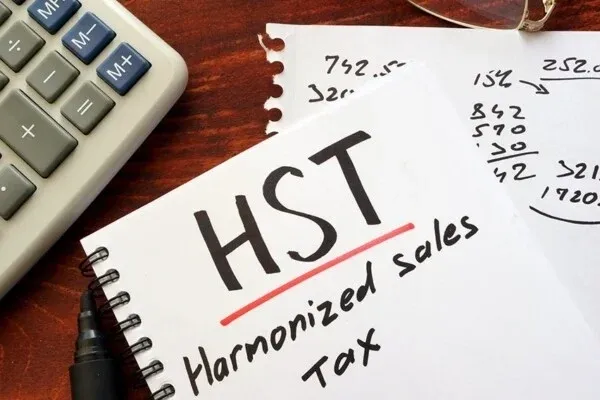 M+
M−
M+
÷
−
=
+
÷
742.5
15%
252.0
842
570
30
42
321
1720
HST
Harmonized sales
Tax